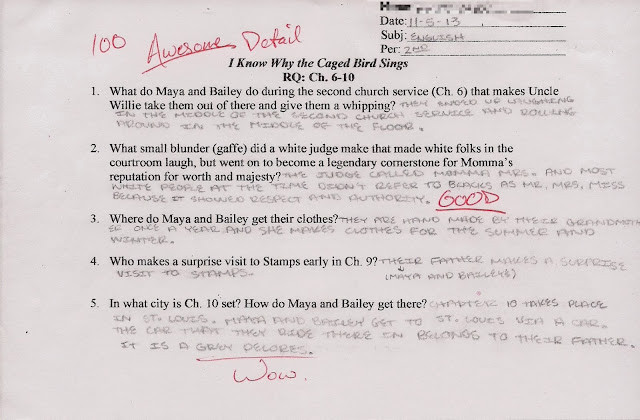 Date: 11-5-13
100 Awesome Detail
Subj: ENGLISH
Per: 2ND
I Know Why the Caged Bird Sings
RQ: Ch. 6-10
1. What do Maya and Bailey do during the second church service (Ch. 6) that makes Uncle
Willie take them out of there and give them a whipping? THEY ENDED UP LAUGHING
IN THE MIDDLE OF THE SECOND CHURCH SERVICE AND ROLLING
AROUND IN THE MIDDLE OF THE FLOOR.
2. What small blunder (gaffe) did a white judge make that made white folks in the
courtroom laugh, but went on to become a legendary cornerstone for Momma's
reputation for worth and majesty? THE JUDGE CALLED MOMMA MRS. AND MOST
WHITE PEOPLE AT THE TIME DIDN'T REFER TO BLACKS AS MR, MRS, MISS
BECAUSE IT SHOWED RESPECT AND AUTHORITY. GOOD
3. Where do Maya and Bailey get their clothes? THEY ARE HAND MADE BY THEIR GRANDMOTH
ER ONCE A YEAR AND SHE MAKES CLOTHES FOR THE SUMMER AND
WINTER.
4. Who makes a surprise visit to Stamps early in Ch. 9? THEIR FATHER MAKES A SURPRISE
VISIT TO STAMPS. (MAYA AND BAILEY'S)
5. In what city is Ch. 10 set? How do Maya and Bailey get there? CHAPTER 10 TAKES PLACE
IN ST. LOUIS. MAYA AND BAILEY GET TO ST. LOUIS VIA A CAR.
THE CAR THAT THEY RIDE THERE IN BELONGS TO THEIR FATHER.
IT IS A GREY DELORES.
Wow.